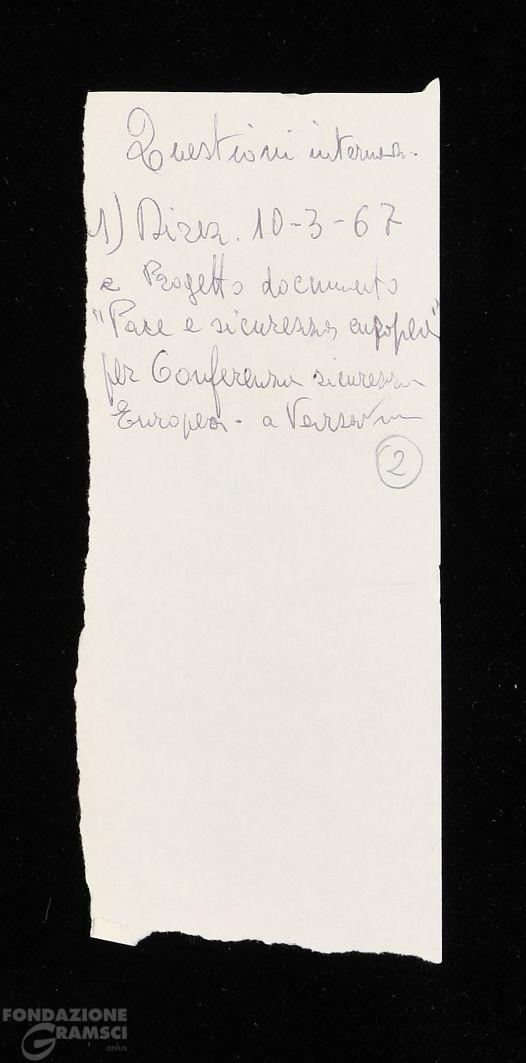 Questioni internaz.
1) Direz. 10-3-67
e Progetto documento
"Pace e sicurezza europea"
per Conferenza sicurezza
Europea - a Varsavia
2
FONDAZIONE
GRAMSCI
onlus